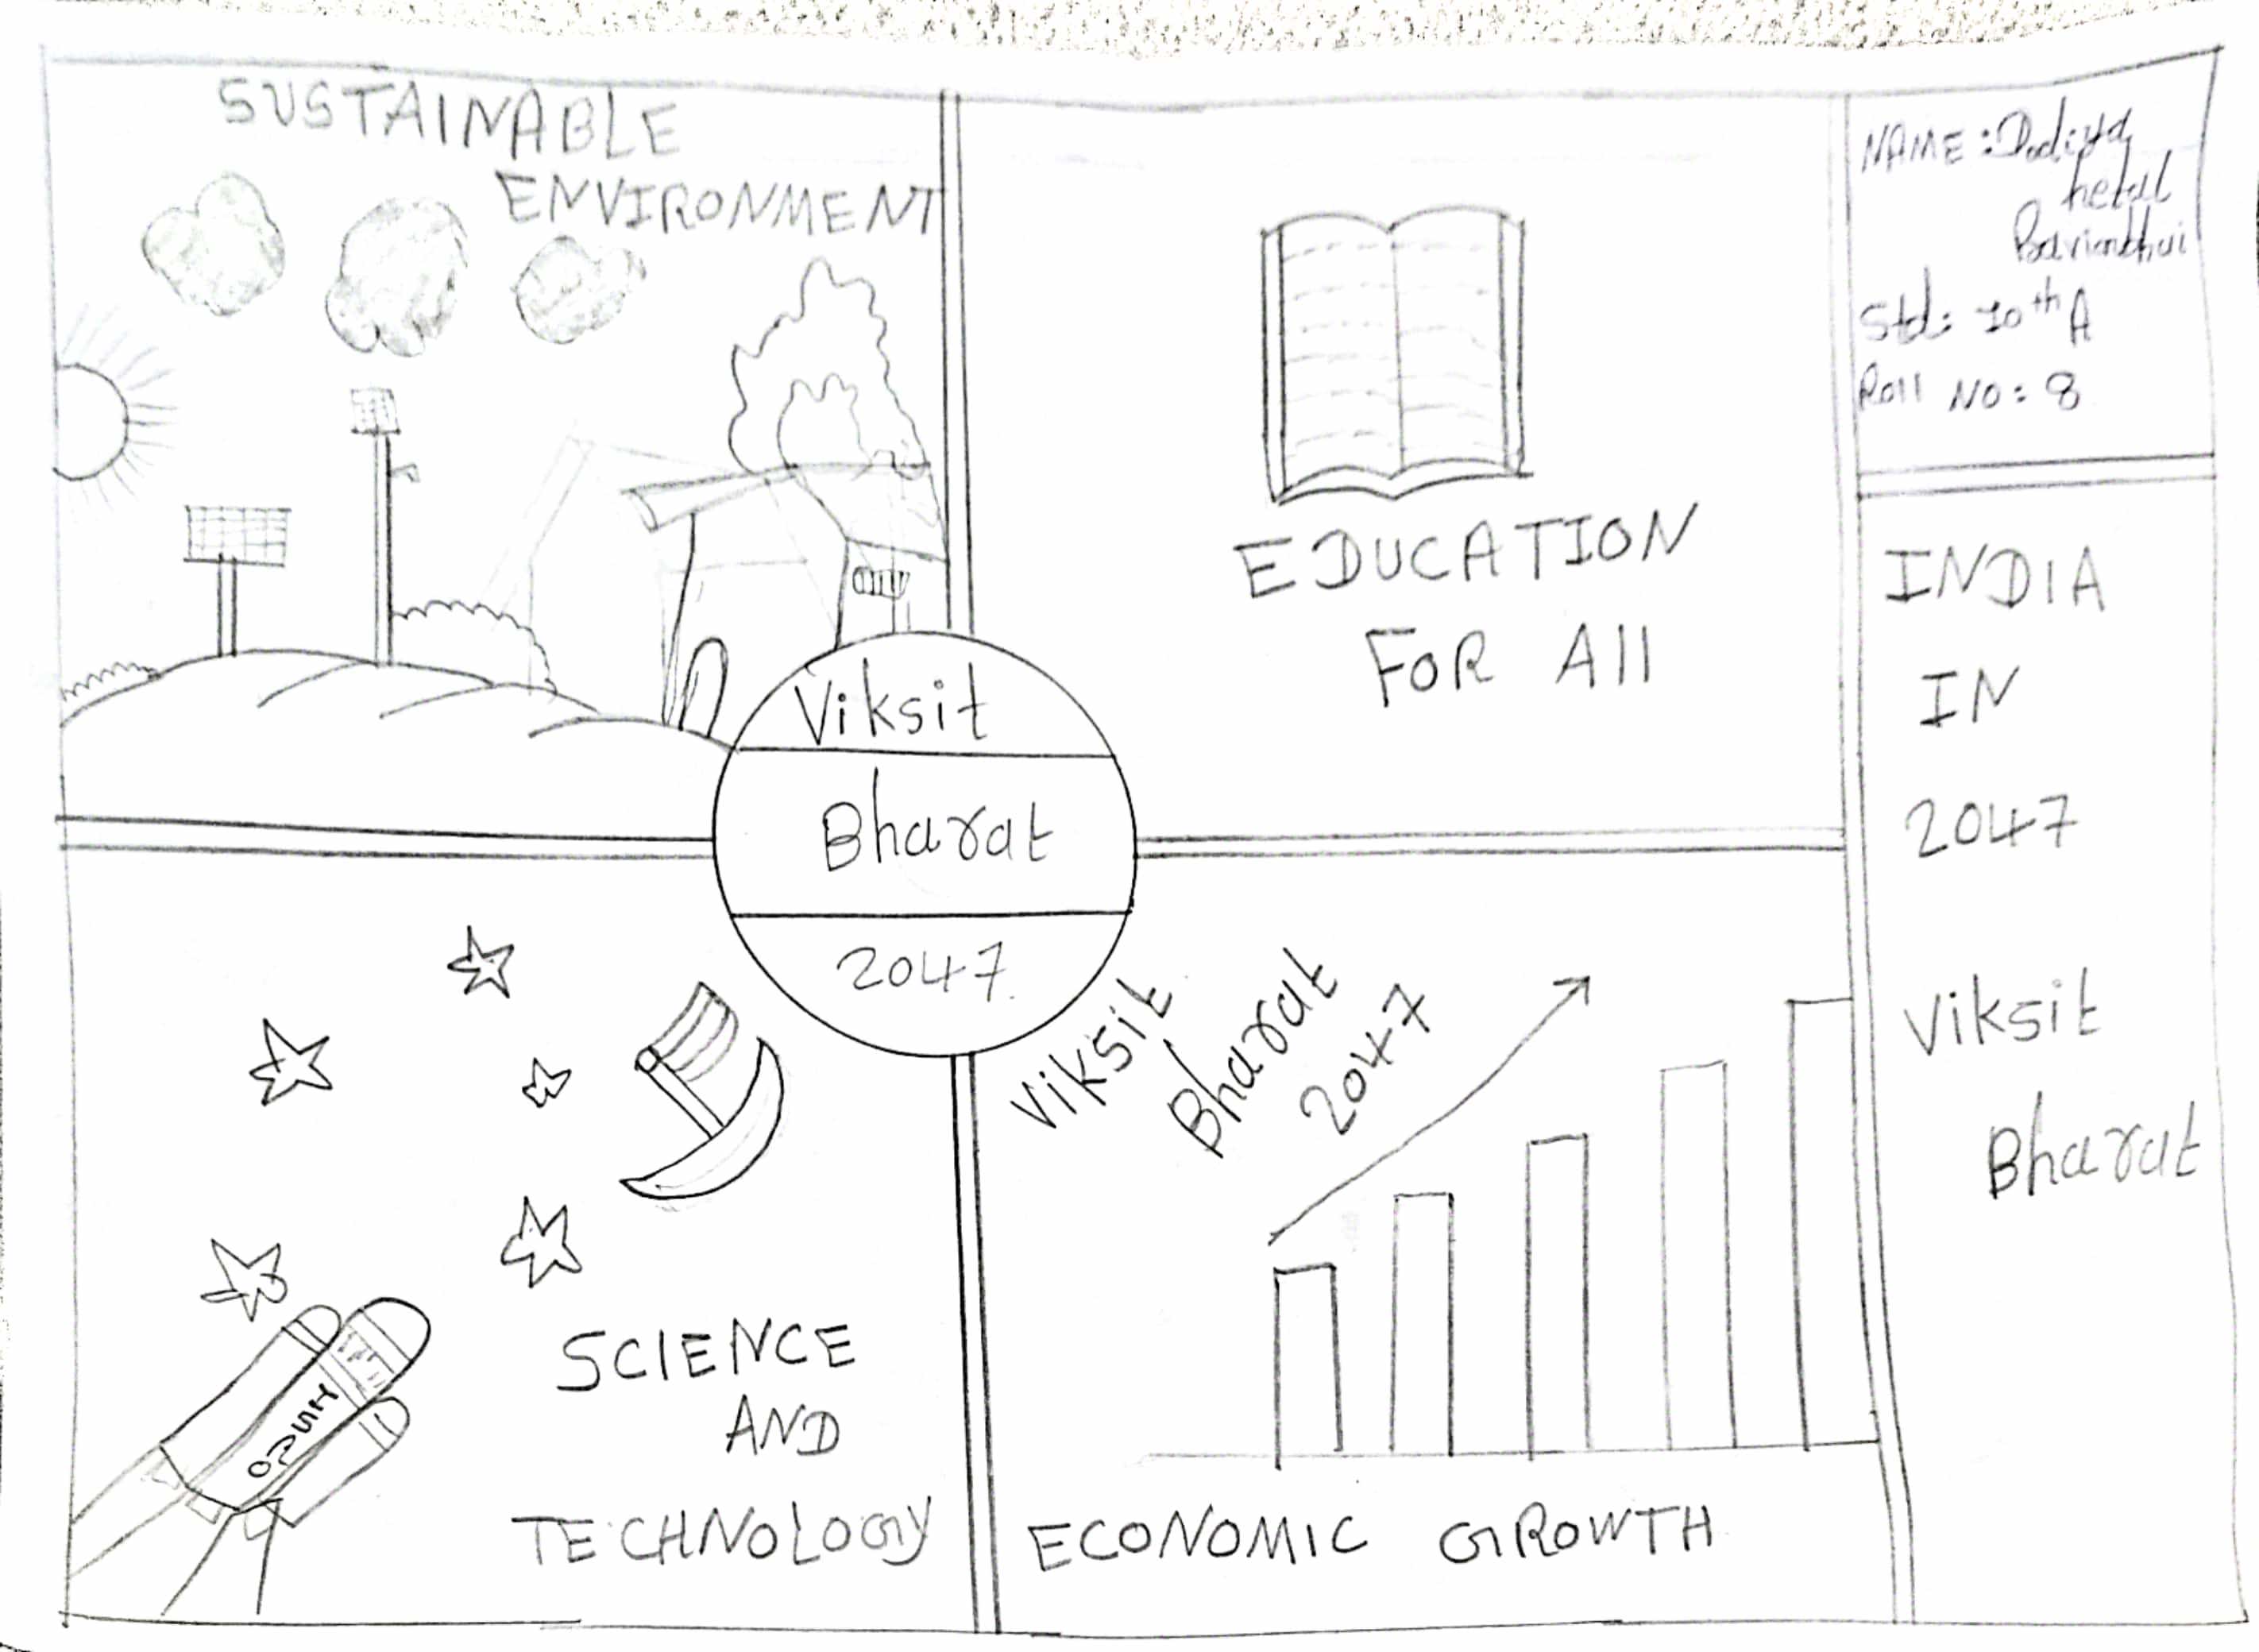 SUSTAINABLE
ENVIRONMENT
EDUCATION
FOR All
NAME: Dodiya
hetal
Std: 10th A
Roll NO: 8
INDIA
IN
2047
Viksit
Bharat
Viksit
Bharat
2047
SCIENCE
AND
TECHNOLOGY
ISRO
Viksit
Bharat
2047
ECONOMIC GROWTH